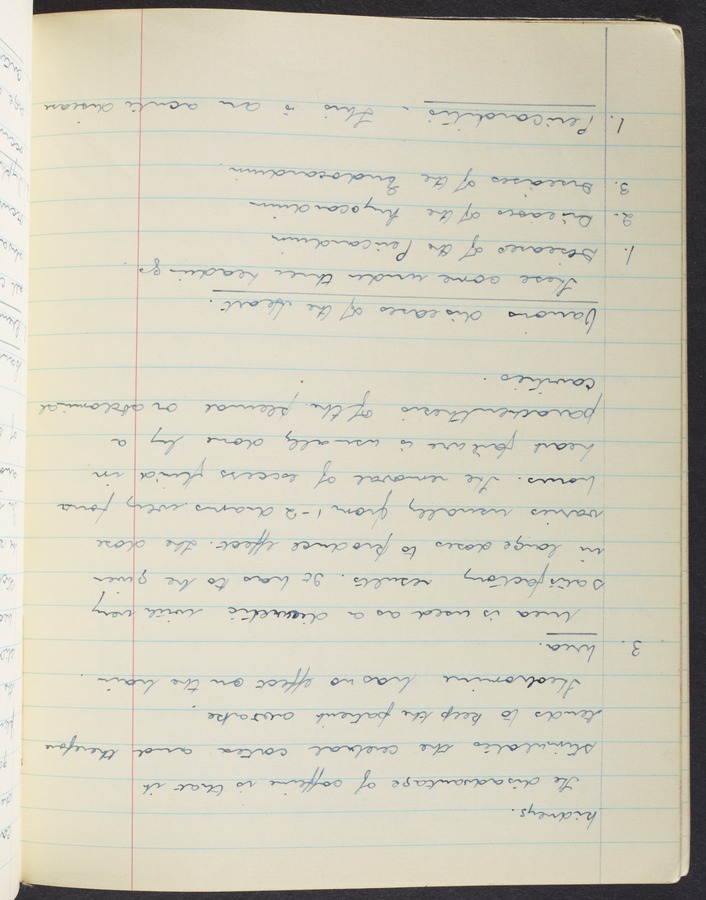 kidneys.
The disadvantage of caffeine is that it
stimulates the cerebral cortex and therefore
tends to keep the patient awake.
Theobromine has no effect on the brain.
3. Urea.
Urea is used as a diuretic with very
satisfactory results. It has to be given
in large doses to produce effect. The dose
varies usually from 1-2 drams every four
hours. The removal of excess fluid in
heart failure is usually done by a
paracenthesis of the pleural or abdominal
cavities.
Various diseases of the Heart.
These come under three headings.
1. Diseases of the Pericardium
2. Diseases of the Myocardium
3. Diseases of the Endocardium.
1. Pericarditis. This is an acute disease